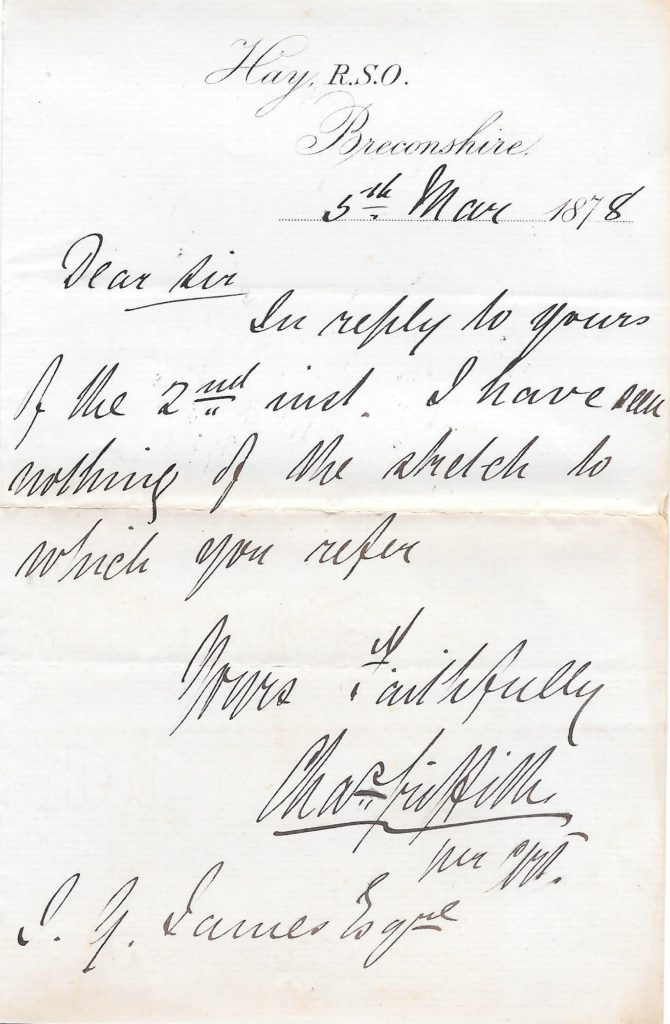 Hay, R.S.O.
Breconshire.
5th Mar 1878
Dear Sir
In reply to yours
of the 2nd inst. I have seen
nothing of the sketch to
which you refer
Yours Faithfully
Chas Griffiths
per
James Esqre